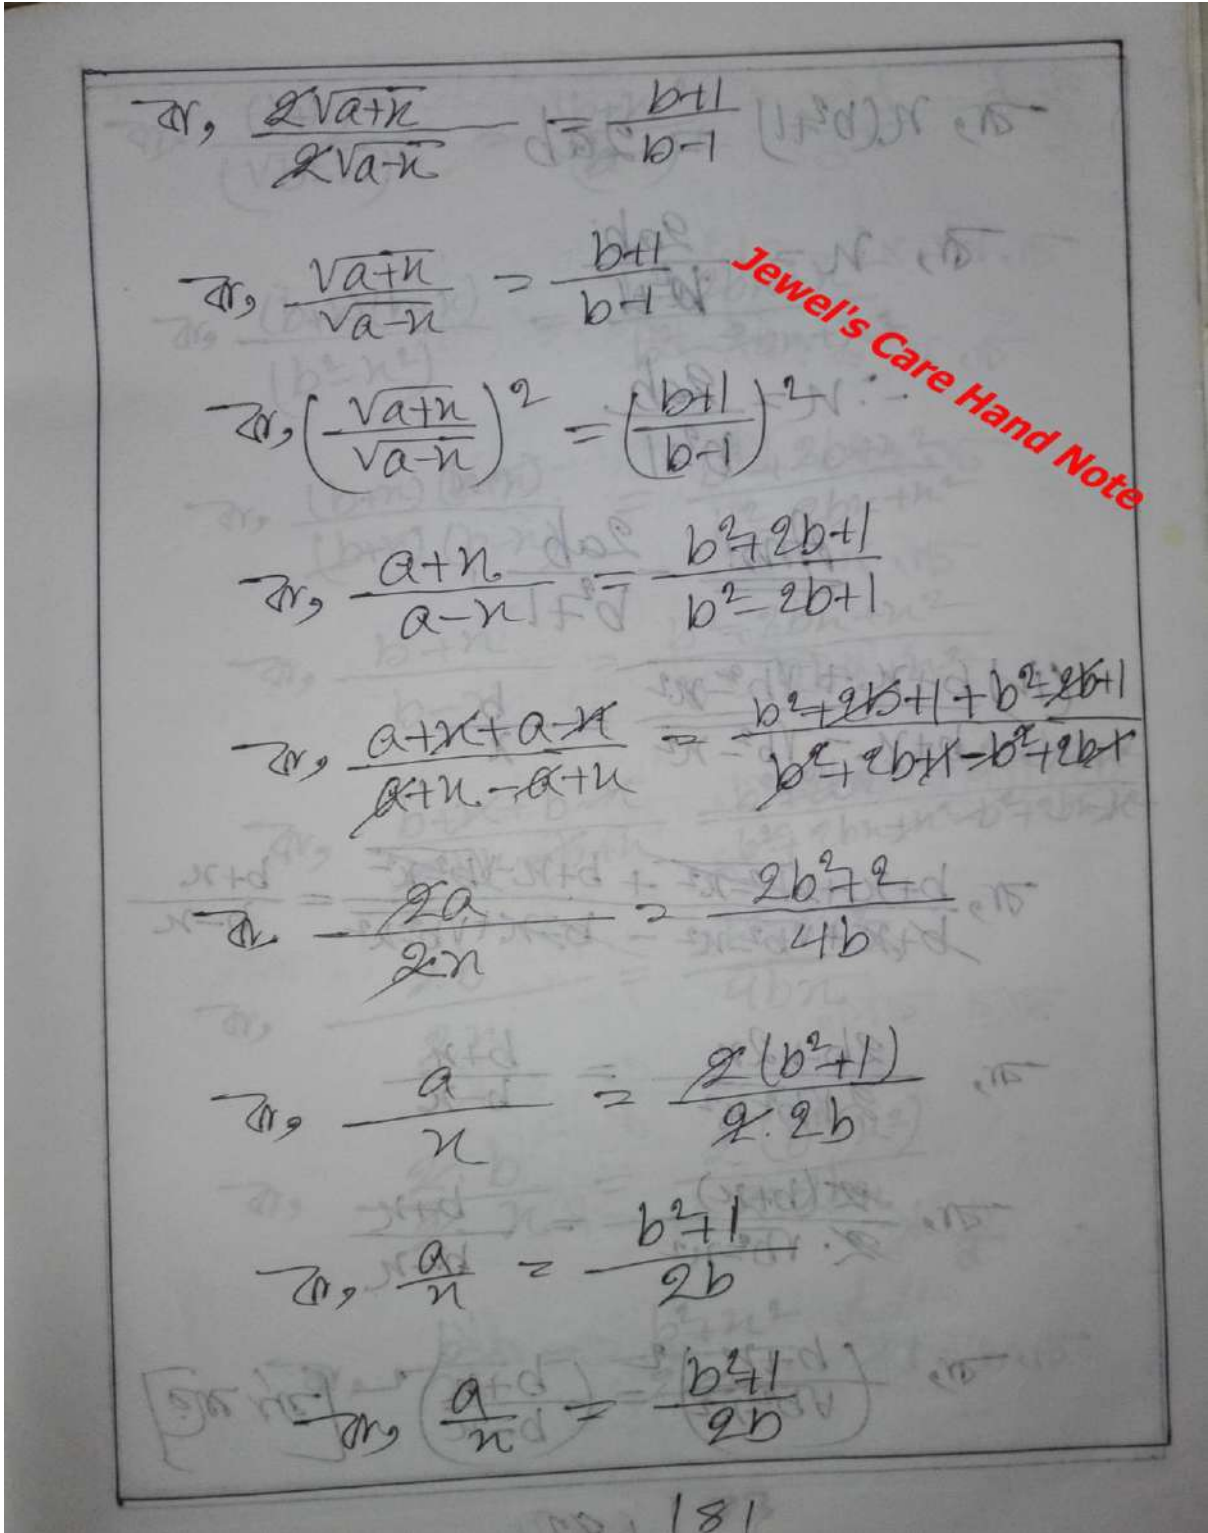 বা, 2√(a+x) / 2√(a-x) = b+1 / b-1
বা, √(a+x) / √(a-x) = b+1 / b-1
Jewel's Care Hand Note
বা, (√(a+x) / √(a-x))² = (b+1 / b-1)²
বা, a+x / a-x = b²+2b+1 / b²-2b+1
বা, a+x+a-x / a+x-a+x = b²+2b+1+b²-2b+1 / b²+2b+1-b²+2b-1
বা, 2a / 2x = 2b²+2 / 4b
বা, a / x = 2(b²+1) / 2.2b
বা, a / x = b²+1 / 2b
বা, a / x = b²+1 / 2b
181